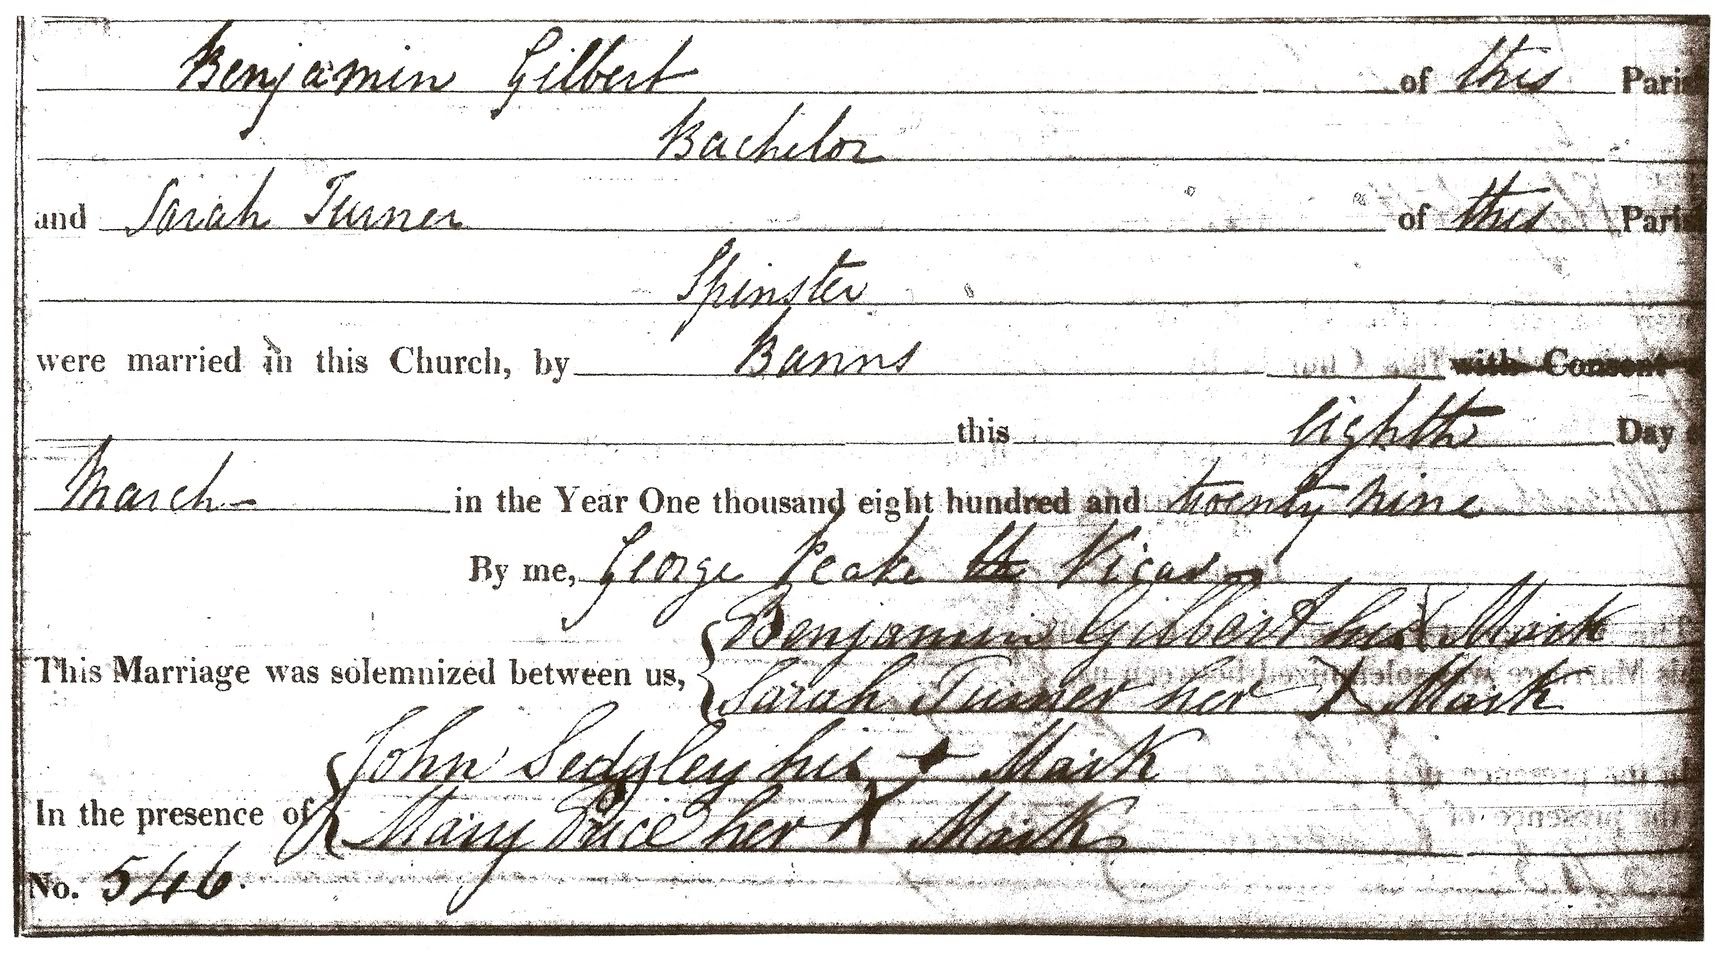 Benjamin Gilbert of this Paris
Bachelor
and Sarah Turner of this Paris
Spinster
were married in this Church, by Banns with Consent
this eighth Day
March in the Year One thousand eight hundred and twenty nine
By me, George Peake Vicar
Benjamin Gilbert his X Mark
This Marriage was solemnized between us,
Sarah Turner her X Mark
John Sedgley his + Mark
In the presence of
Mary Price her X Mark
No. 546.